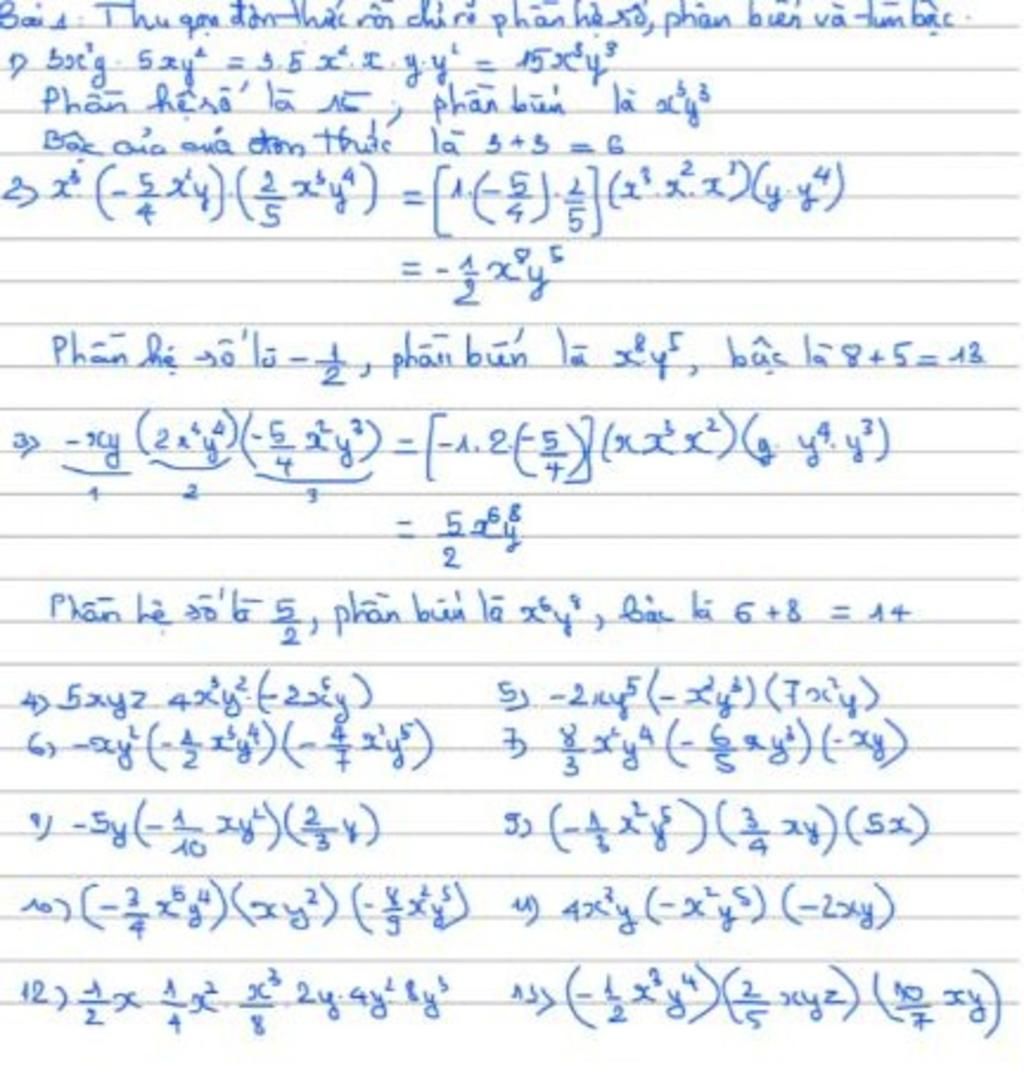 Bài 1: Thu gọn đơn thức rồi chỉ rõ phần hệ số, phần biến và tìm bậc.
1) 3x²y · 5xy² = 3.5 x².x.y.y² = 15x³y³
Phần hệ số là 15, phần biến là x³y³
Bậc của đơn thức là 3+3 = 6
2) x³ (-5/4 x²y).(2/5 x³y⁴) = [1.(-5/4).2/5](x³.x².x³)(y.y⁴)
= -1/2 x⁸y⁵
Phần hệ số là -1/2, phần biến là x⁸y⁵, bậc là 8+5=13
3) -xy (2x³y⁴)(-5/4 x²y³) = [-1.2(-5/4)](x x³ x²)(y y⁴.y³)
1 2 3
= 5/2 x⁶y⁸
Phần hệ số là 5/2, phần biến là x⁶y⁸, bậc là 6+8 = 14
4) 5xyz 4x³y².(-2x⁵y) 5) -2xy⁵(-x²y³)(7x²y)
6) -xy²(-1/2 x³y⁴)(-4/7 x²y⁵) 7) 8/3 x²y⁴(-6/5 xy³)(-xy)
8) -5y(-1/10 xy²)(2/3 y) 9) (-1/3 x²y⁵)(3/4 xy)(5x)
10) (-3/4 x⁵y⁴)(xy²)(-8/9 x²y⁵) 11) 4x³y(-x²y⁵)(-2xy)
12) 1/2 x 1/4 x² · x³/8 2y.4y² 8y³ 13) (-1/2 x³y⁴)(2/5 xyz)(10/7 xy)